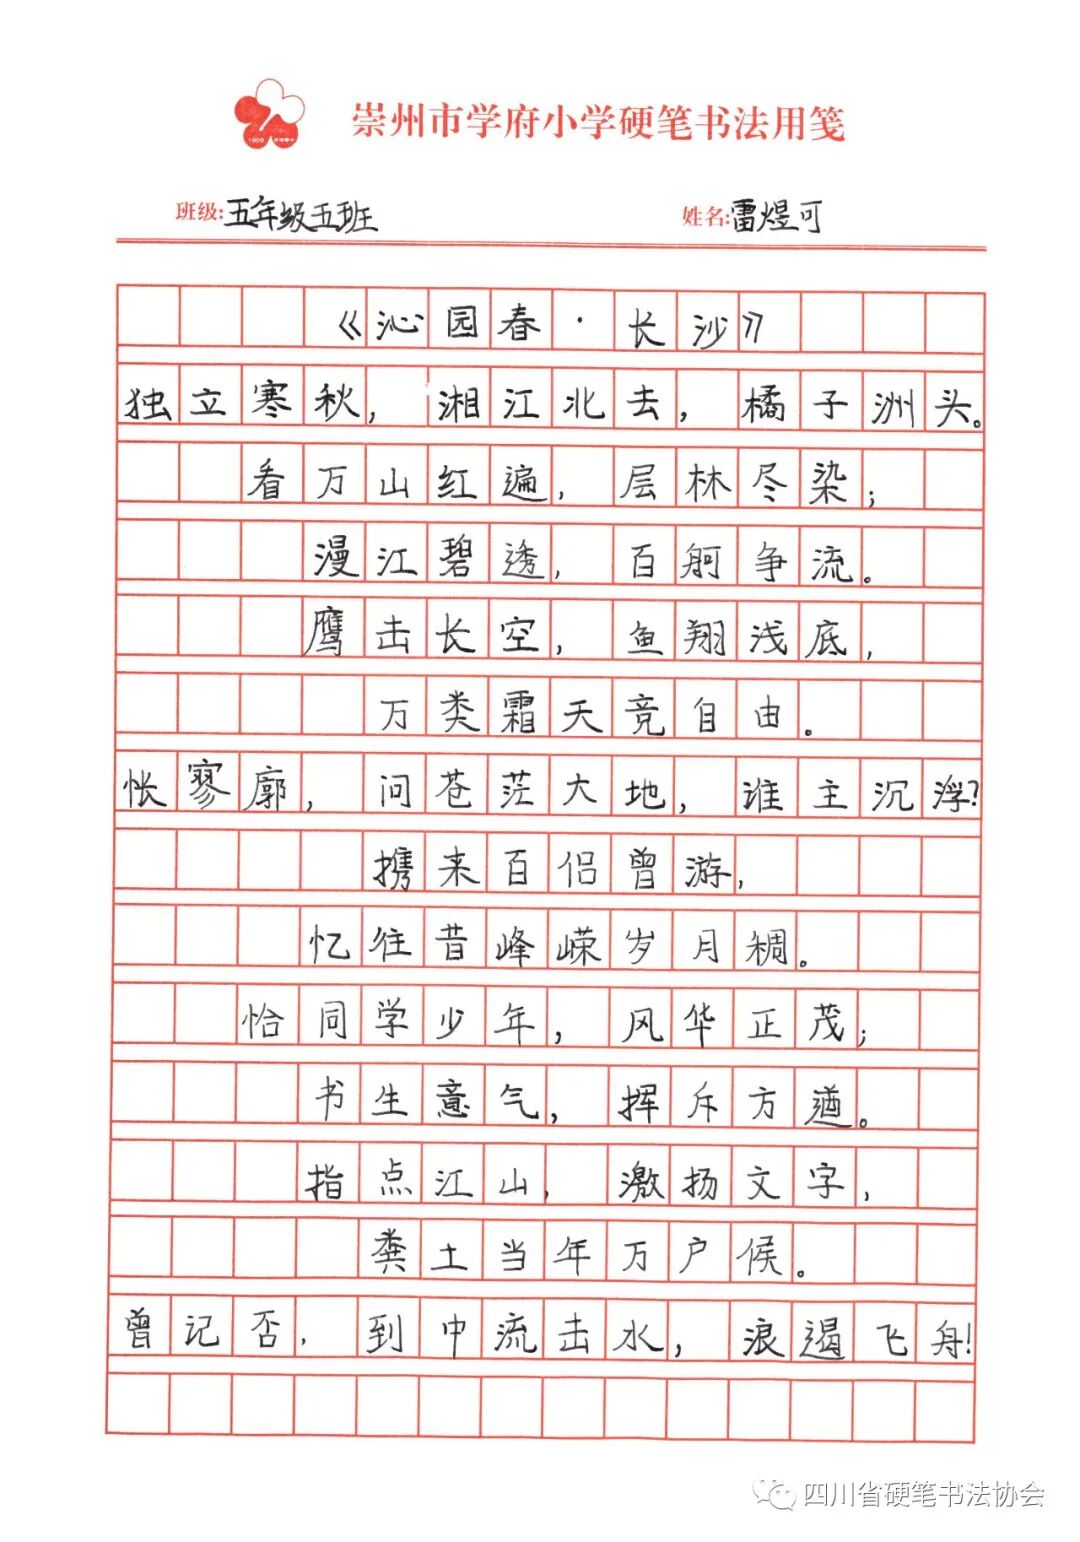 崇州市学府小学硬笔书法用笺
班级:五年级五班 姓名:雷煜可
《沁园春·长沙》
独立寒秋，湘江北去，橘子洲头。
看万山红遍，层林尽染；
漫江碧透，百舸争流。
鹰击长空，鱼翔浅底，
万类霜天竞自由。
怅寥廓，问苍茫大地，谁主沉浮？
携来百侣曾游，
忆往昔峰嵘岁月稠。
恰同学少年，风华正茂；
书生意气，挥斥方遒。
指点江山，激扬文字，
粪土当年万户候。
曾记否，到中流击水，浪遏飞舟！
四川省硬笔书法协会